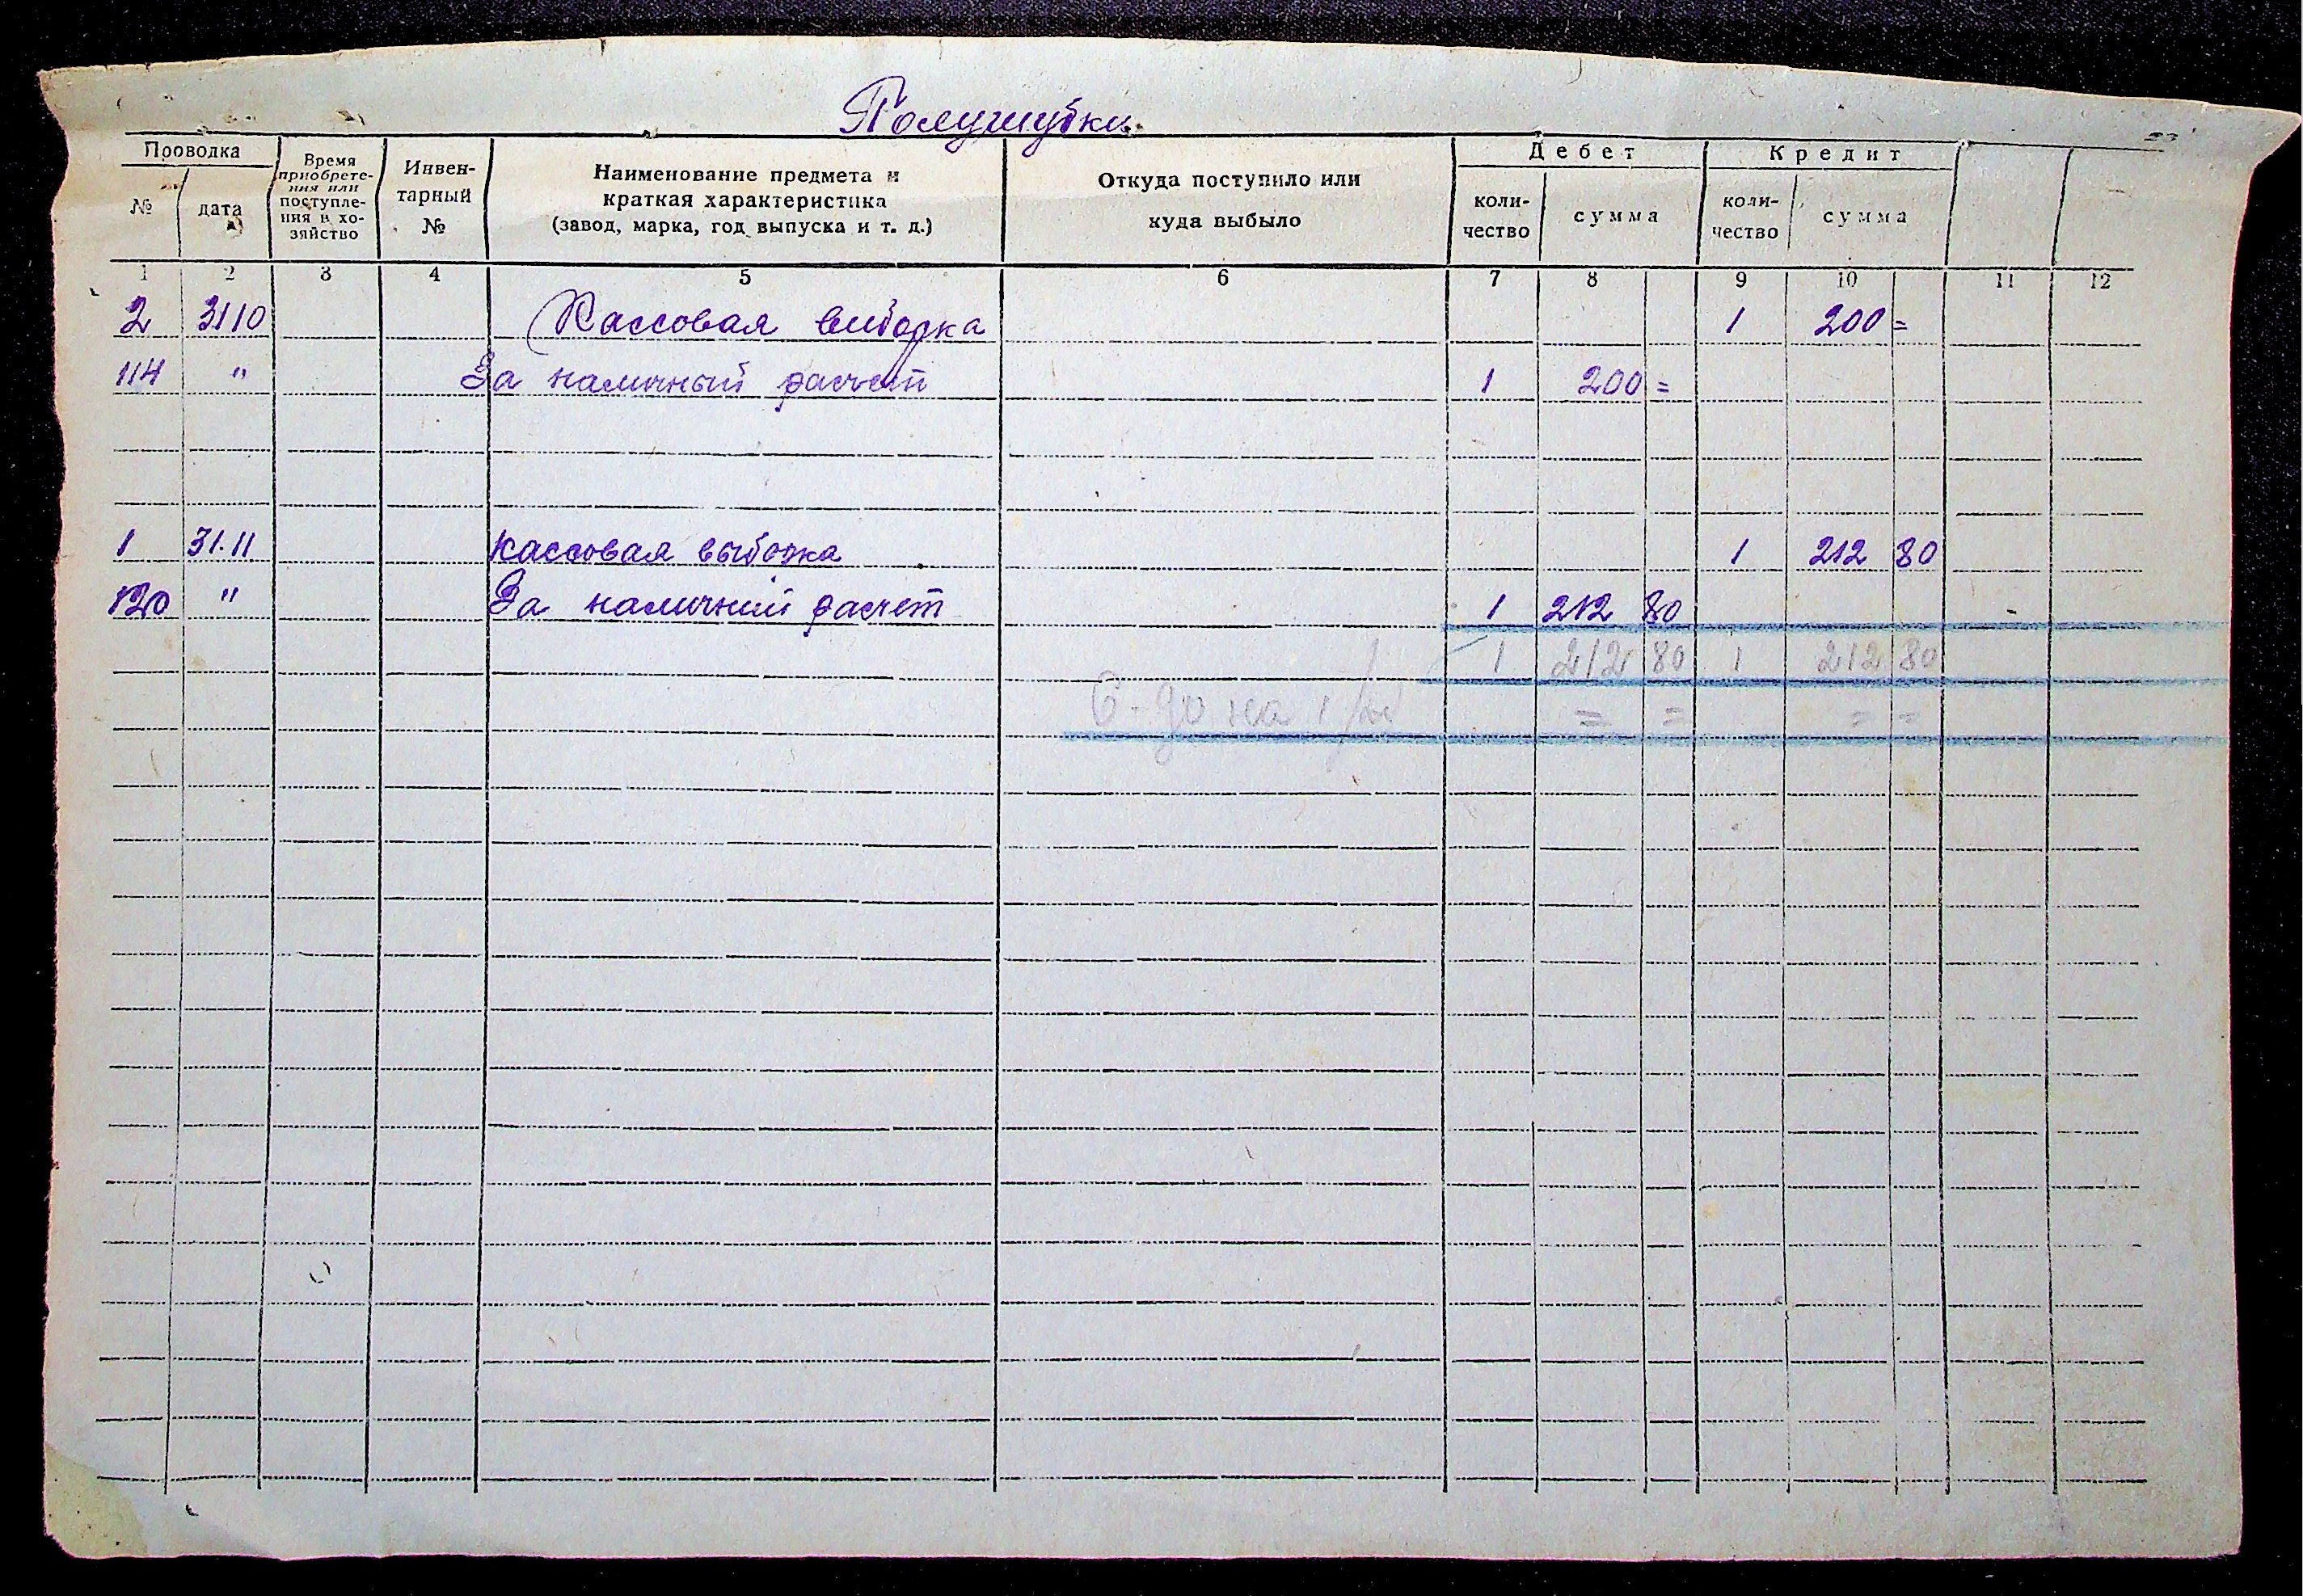 Полушубки
Проводка
Время приобрете-
ния или
поступле-
ния в хо-
зяйство
Инвен-
тарный
№
Наименование предмета и
краткая характеристика
(завод, марка, год выпуска и т. д.)
Откуда поступило или
куда выбыло
Дебет
Кредит
№
дата
коли-
чество
сумма
коли-
чество
сумма
1 2 3 4 5 6 7 8 9 10 11 12
2 31 10 Кассовая выборка 1 200 =
114 " За наличный расчет 1 200 =
1 31.11 кассовая выборка 1 212 80
120 " За наличний расчет 1 212 80
1 212 80 1 212 80
С-до на 1/
= = = =